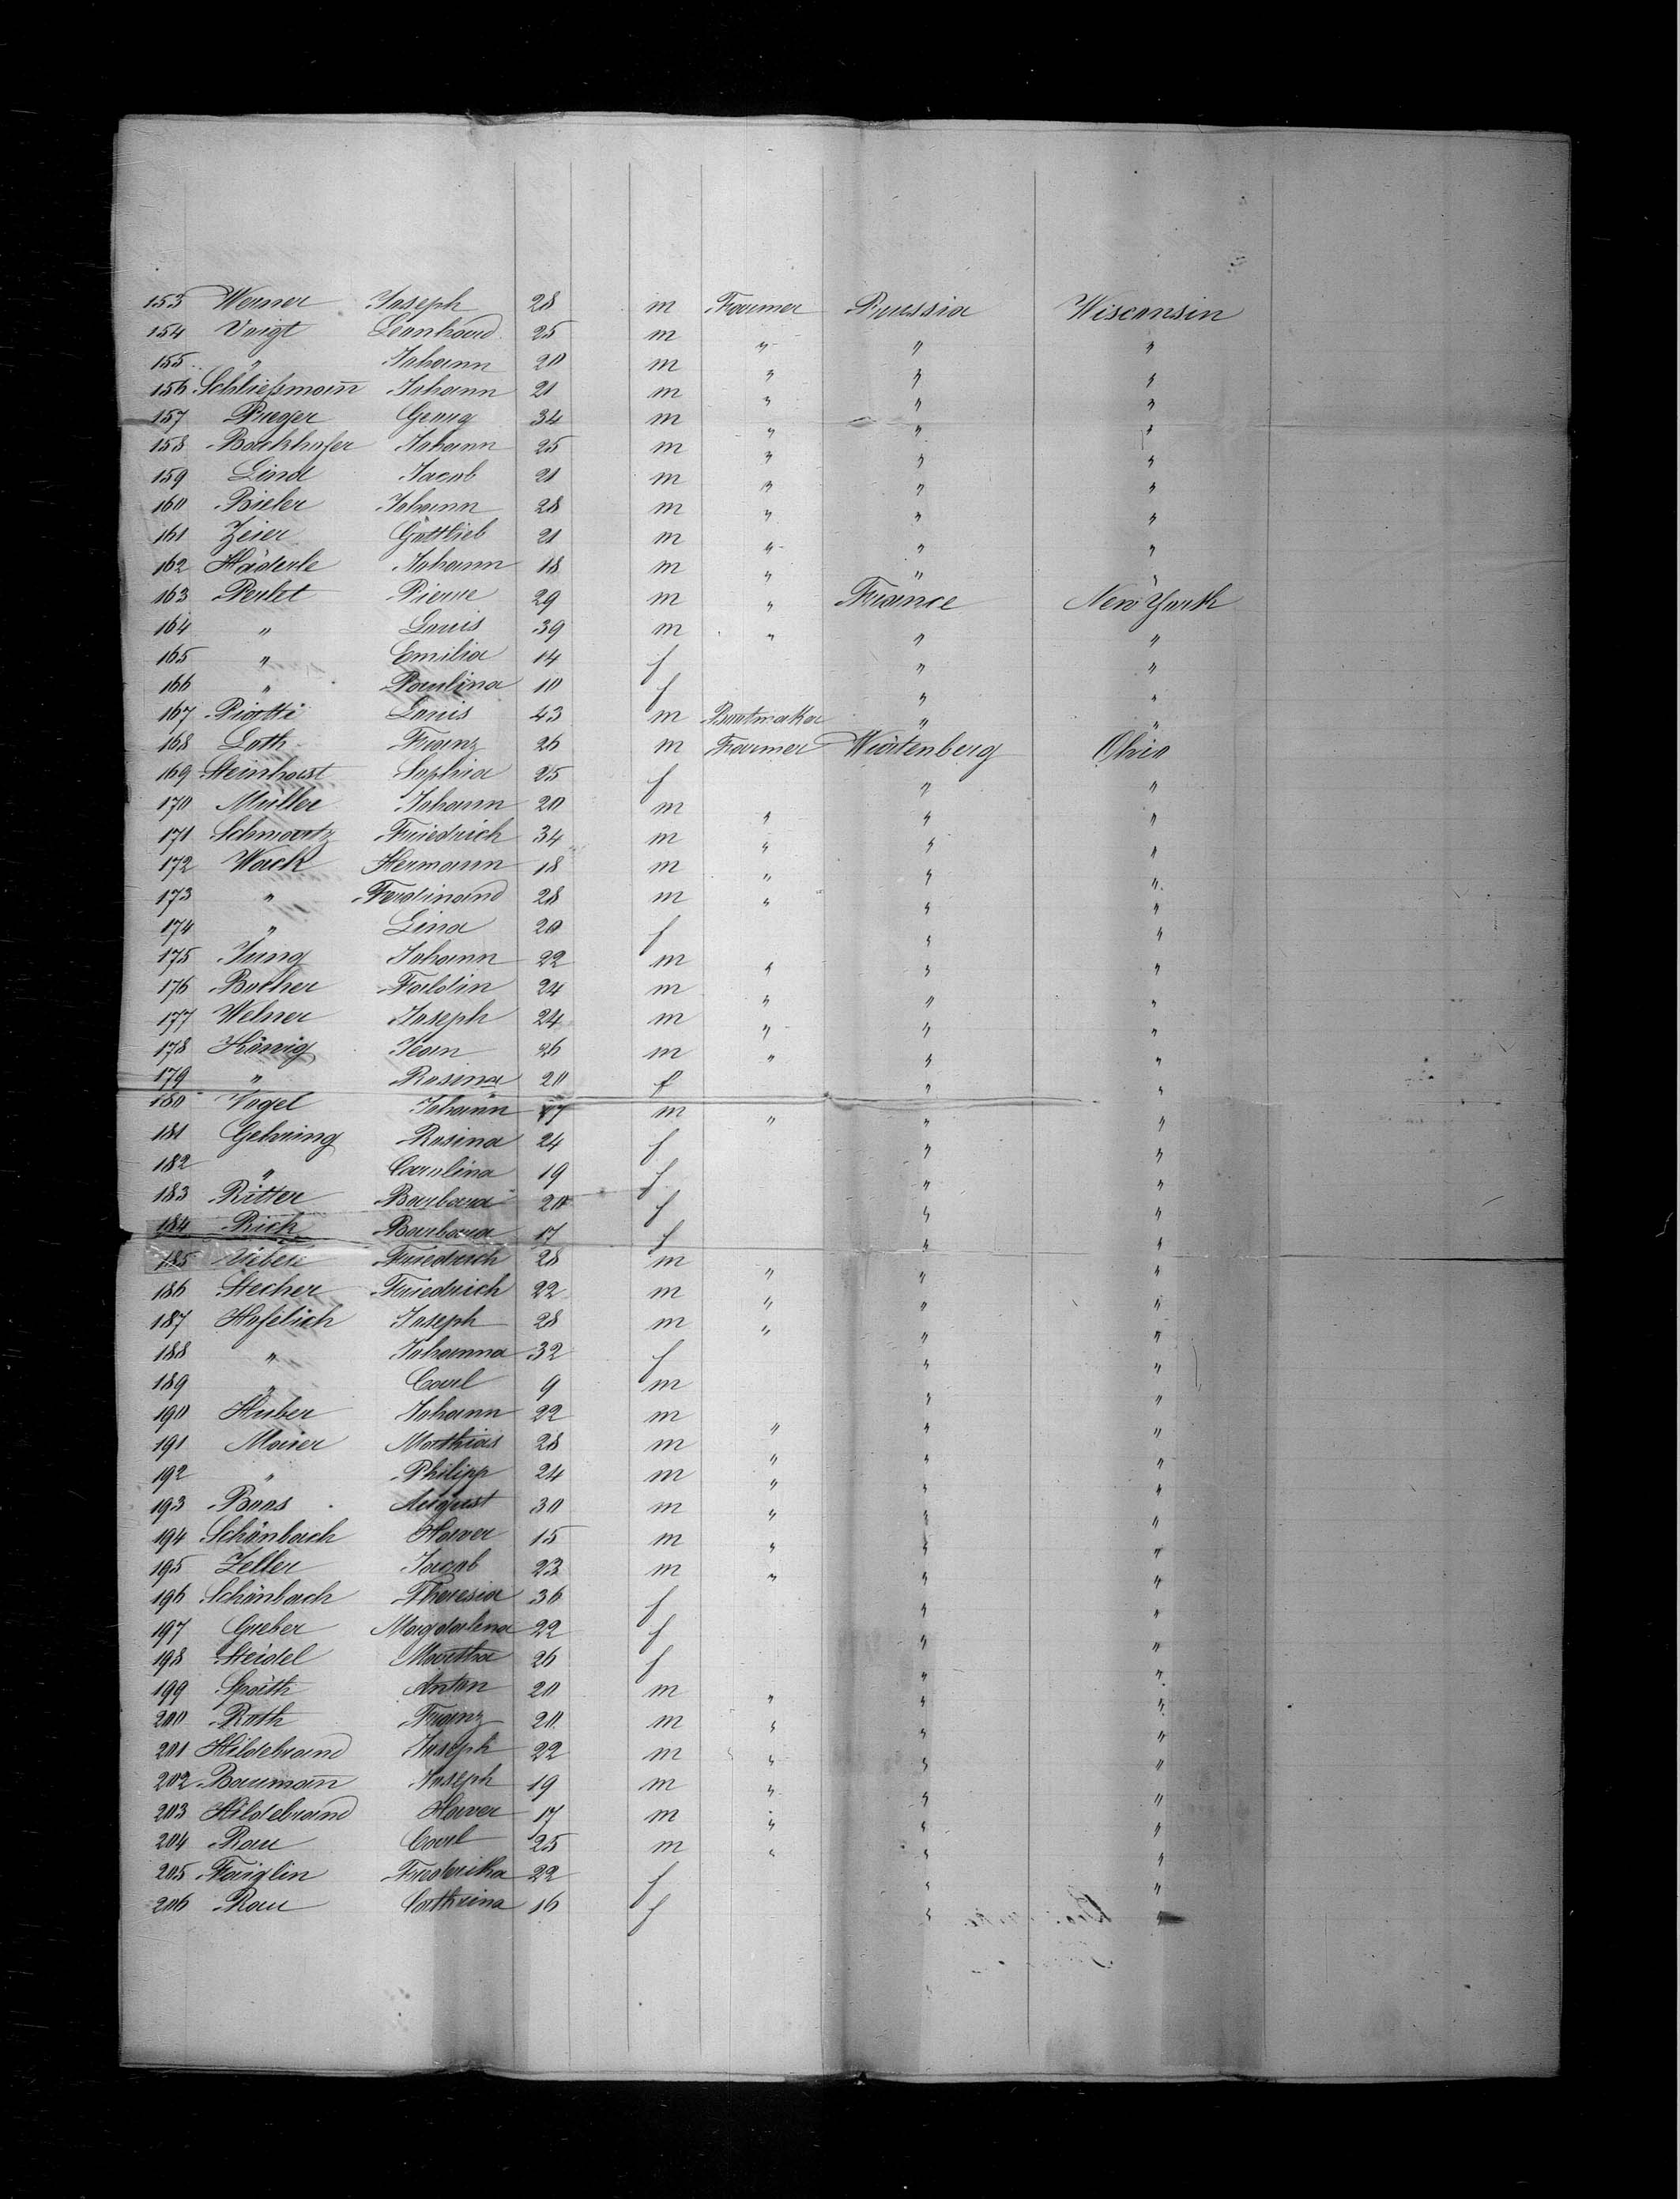 153 Werner Joseph 28 m Farmer Prussia Wisconsin
154 Voigt Leonhard 25 m " " "
155 " Johann 20 m " " "
156 Schließmann Johann 21 m " " "
157 Prieger Georg 34 m " " "
158 Backhofer Johann 25 m " " "
159 Lind Jacob 21 m " " "
160 Bieler Johann 28 m " " "
161 Zeier Gottlieb 21 m " " "
162 Häderle Johann 18 m " " "
163 Perlet Pierre 29 m " France New York
164 " Louis 39 m " " "
165 " Emilia 14 f " "
166 " Paulina 10 f " "
167 Piotti Louis 43 m Bootmaker " "
168 Loth Franz 26 m Farmer Würtenberg Ohio
169 Steinhorst Sophia 25 f " "
170 Müller Johann 20 m " " "
171 Schwartz Friedrich 34 m " " "
172 Wack Hermann 18 m " " "
173 " Ferdinand 28 m " " "
174 " Lina 20 f " "
175 Jung Johann 22 m " " "
176 Bucher Faldin 24 m " " "
177 Welner Joseph 24 m " " "
178 König Jean 26 m " " "
179 " Rosina 20 f " "
180 Vogel Johann 17 m " " "
181 Gehring Rosina 24 f " "
182 " Carolina 19 f " "
183 Ritter Barbara 20 f " "
184 Rich Barbara 17 f " "
185 Friedrich 28 m " " "
186 Stecher Friedrich 22 m " " "
187 Hofelich Joseph 28 m " " "
188 " Johanna 32 f " "
189 " Carl 9 m " "
190 Huber Johann 22 m " " "
191 Maier Mathias 28 m " " "
192 " Philipp 24 m " " "
193 Boos August 30 m " " "
194 Schönbach Xaver 15 m " " "
195 Zeller Jacob 23 m " " "
196 Schönbach Theresia 36 f " "
197 Greber Magdalena 22 f " "
198 Steidel Martha 26 f " "
199 Späth Anton 20 m " " "
200 Roth Franz 20 m " " "
201 Hildebrand Joseph 22 m " " "
202 Baumann Joseph 19 m " " "
203 Hildebrand Xaver 17 m " " "
204 Rau Carl 25 m " " "
205 Faiglin Frederika 22 f " "
206 Rau Cathrina 16 f " "